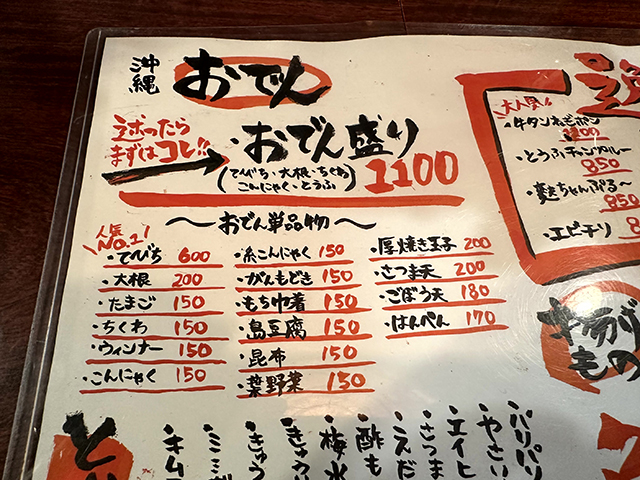 沖縄
おでん
迷ったら
まずはコレ!!
・おでん盛り
(てびち・大根・ちくわ
こんにゃく・とうふ)
1100
〜おでん単品物〜
人気
NO.1!
・てびち 600
・大根 200
・たまご 150
・ちくわ 150
・ウィンナー 150
・こんにゃく 150
・糸こんにゃく 150
・がんもどき 150
・もち巾着 150
・島豆腐 150
・昆布 150
・葉野菜 150
・厚焼き玉子 200
・さつま天 200
・ごぼう天 180
・はんぺん 170
大人気!!
・牛タンねぎポン
1200
・とうふチャンプルー
850
・麩ちゃんぷる〜
850
・エビチリ
もの
・パリパリ
・やさい
・エイヒ
・さつま
・こえだ
・酢も
・梅水
・きゅうり
・きゅう
・ミミガ
・キム